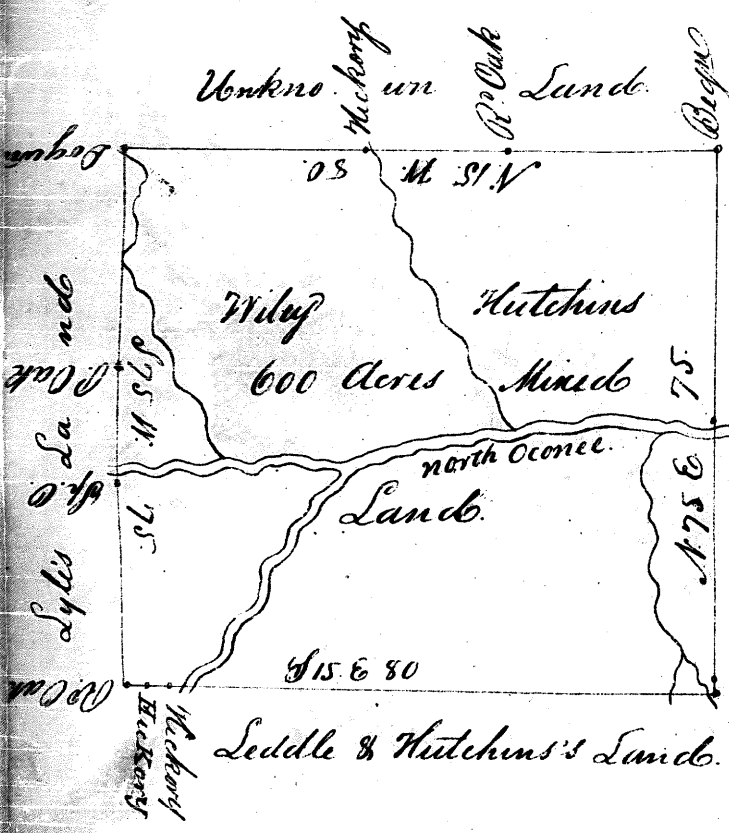 Unkno. wn Land
Hickory
Rd Oak
Begn
Dogwd
N. 15 W. 80
Wiley Hutchins
600 Acres Mixed
Land.
north Oconee.
75.
N. 75 E
S 75 W.
75
P. Oak
Sp. O.
Lyle's La nd
R. Oak
Hickory
Hickory
S 15 E 80
Leddle & Hutchins's Land.